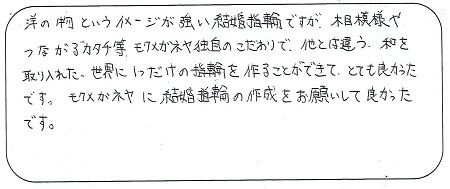 洋の物というイメージが強い結婚指輪ですが、木目模様や
つながるカタチ等、モクメガネヤ独自のこだわりで、他とは違う、和を
取り入れた、世界に1つだけの指輪を作ることができて、とても良かった
です。モクメガネヤに結婚指輪の作成をお願いして良かった
です。